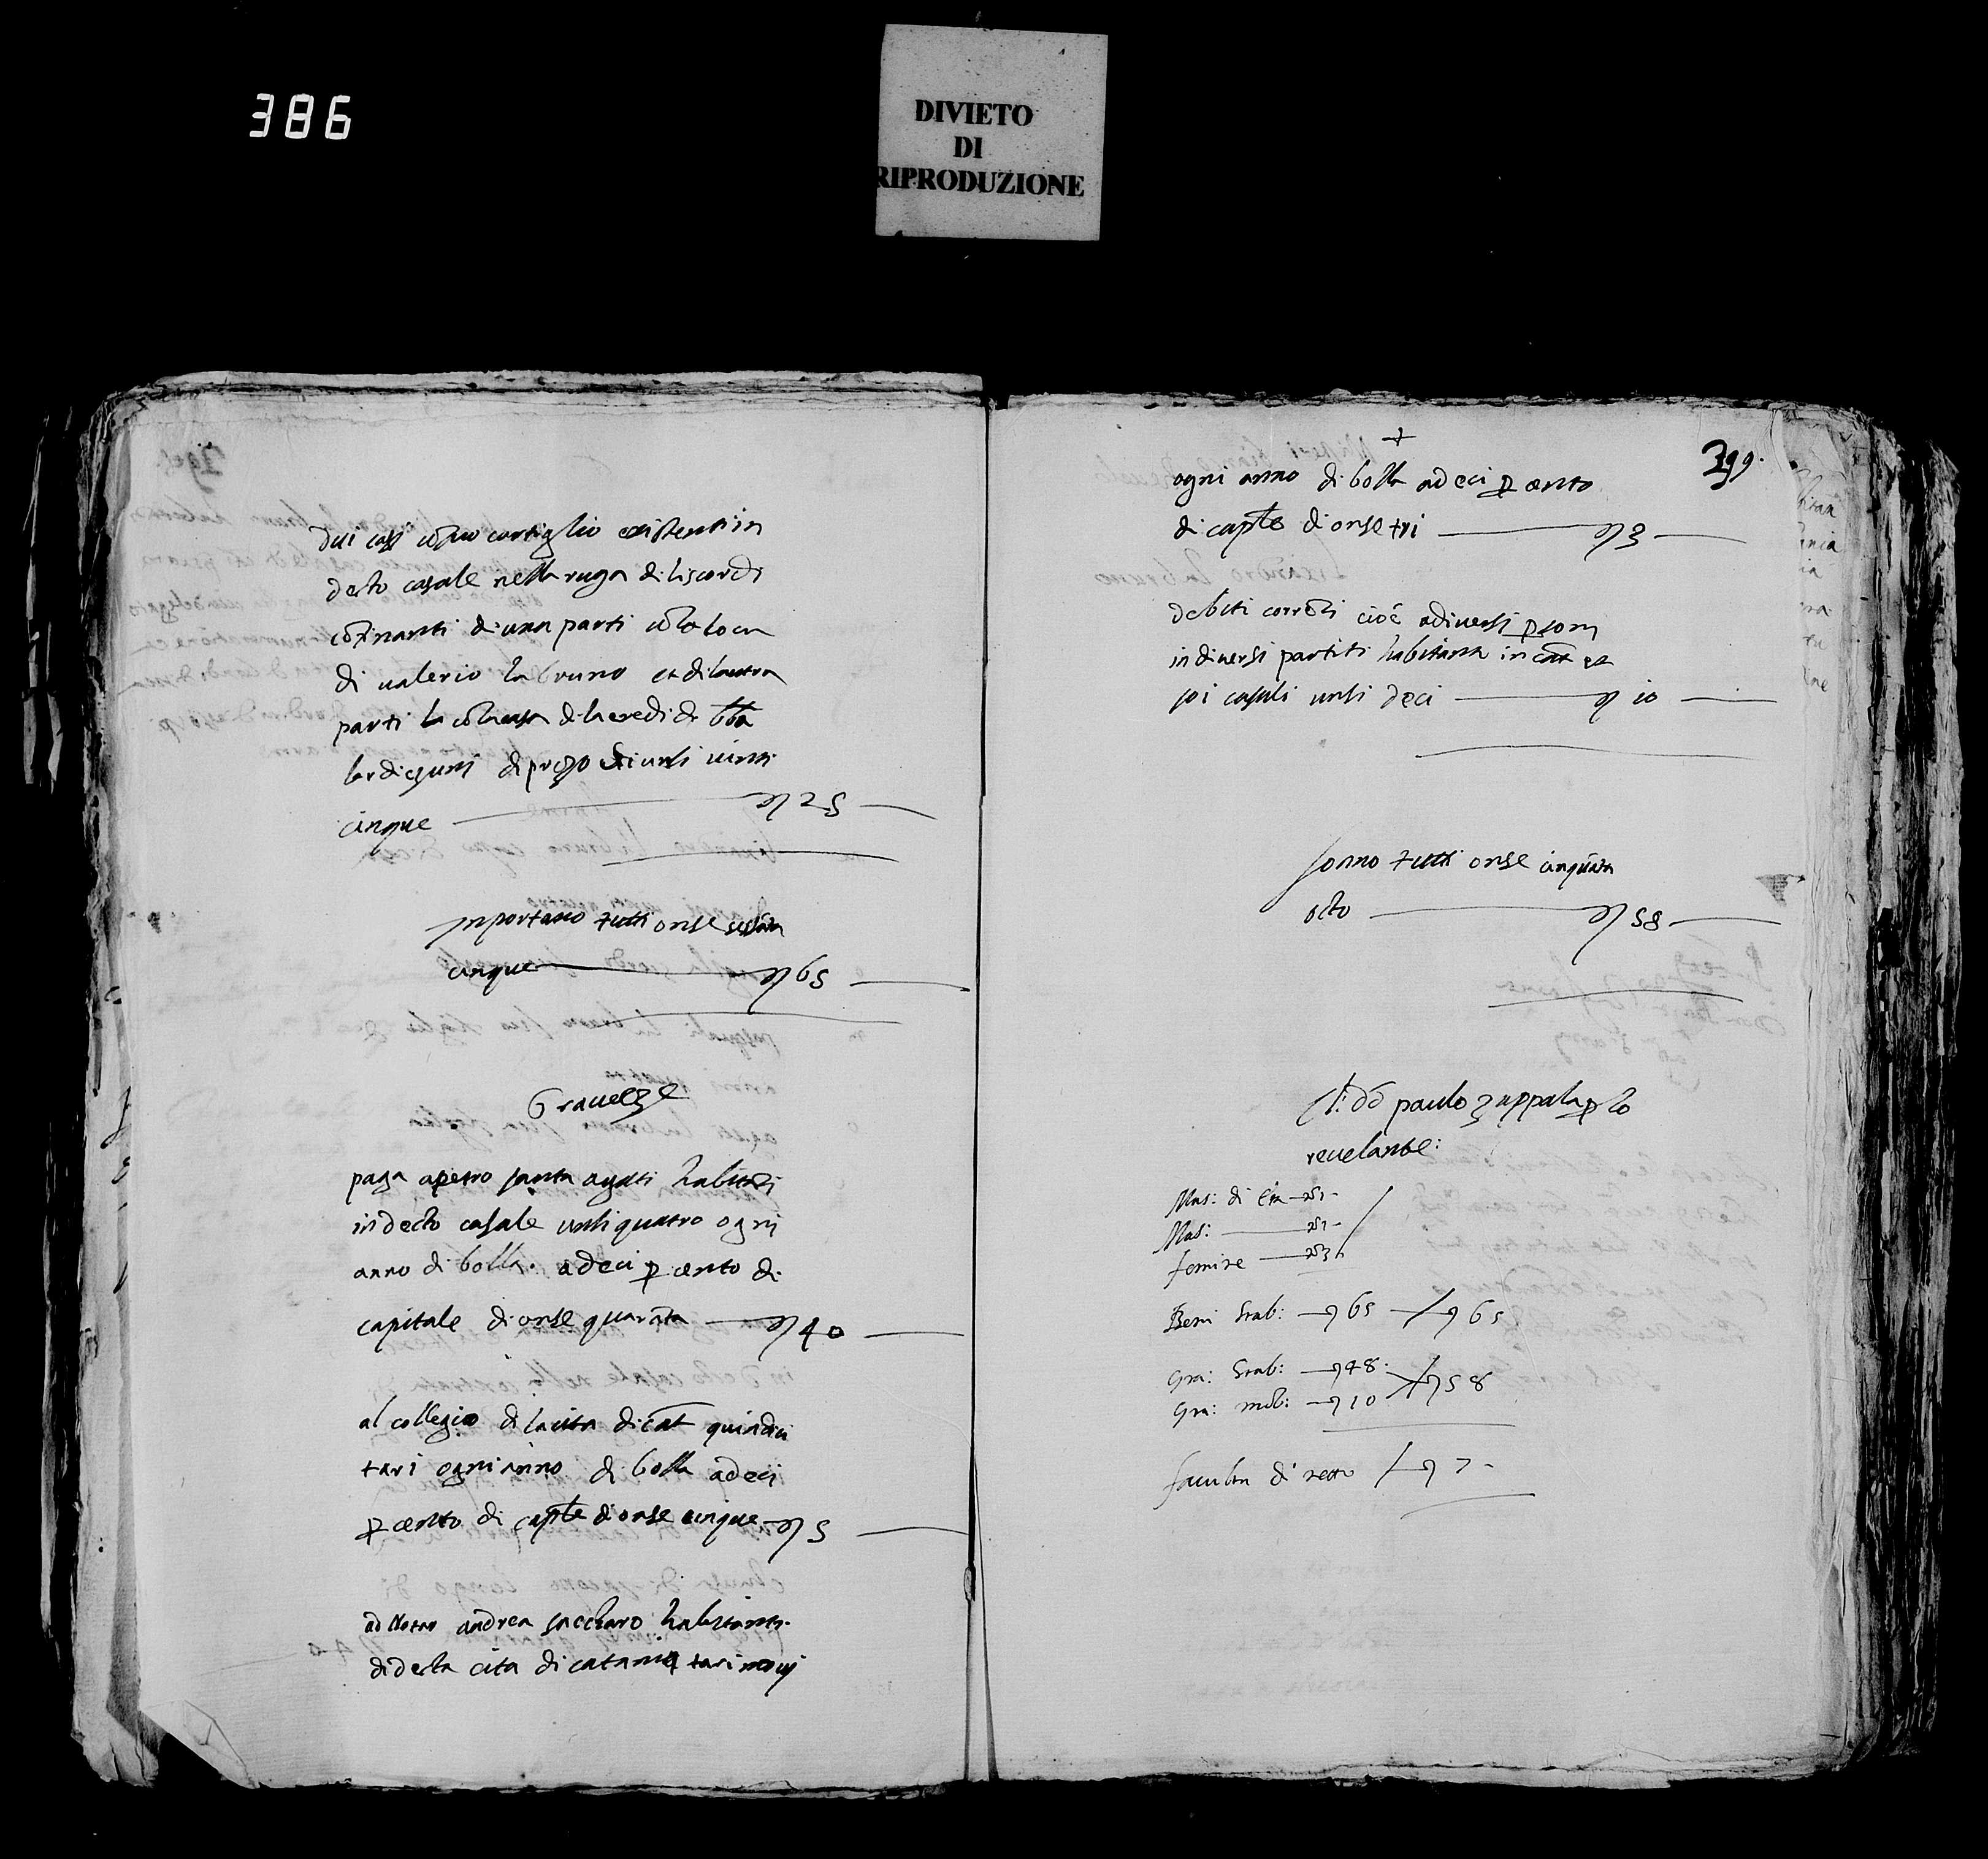 386
DIVIETO
DI
RIPRODUZIONE
dui casi cõ suo cortiglio existenti in
decto casale nella ruga di li scordi
cõfinanti di una parti cõ la loca
di valerio la bruno et di l'autra
parti la cõ la casa di la eredi di
di prezo di unsi vinti
cinque ——— 25 —
Importano tutti onse sessãta
cinque ——— 65 —
Graveze
paga a petro santa agati habitãti
in decto casale unsi quatro ogni
anno di bolla adeci p cento di
capitale di onse quarãta — 40 —
al collegio di la cita di cat quindici
tari ogni anno di bolla adeci
p cento di capĩle di onse cinque — 5 —
ad Notar andrea saccharo habitanti
di decta cita di catania tari novj
+
399.
ogni anno di bolla adeci p cento
di capĩle di onse tri ——— 3 —
debiti corrẽti cioè a diversi p soni
in diversi partiti habitanti in cat et
soi casali unsi deci ——— 10 —
sonno tutti onse cinquãta
octo ——— 58 —
Cl: dõ paulo zuppala p lo
revelante:
Mas: di Eta — 1 —
Mas: — 1 —
femine — 3
Beni stab: — 65 — 65
Gra: stab: — 48.
Gra: mob: — 10 — 58
faculta di netto — 7 —